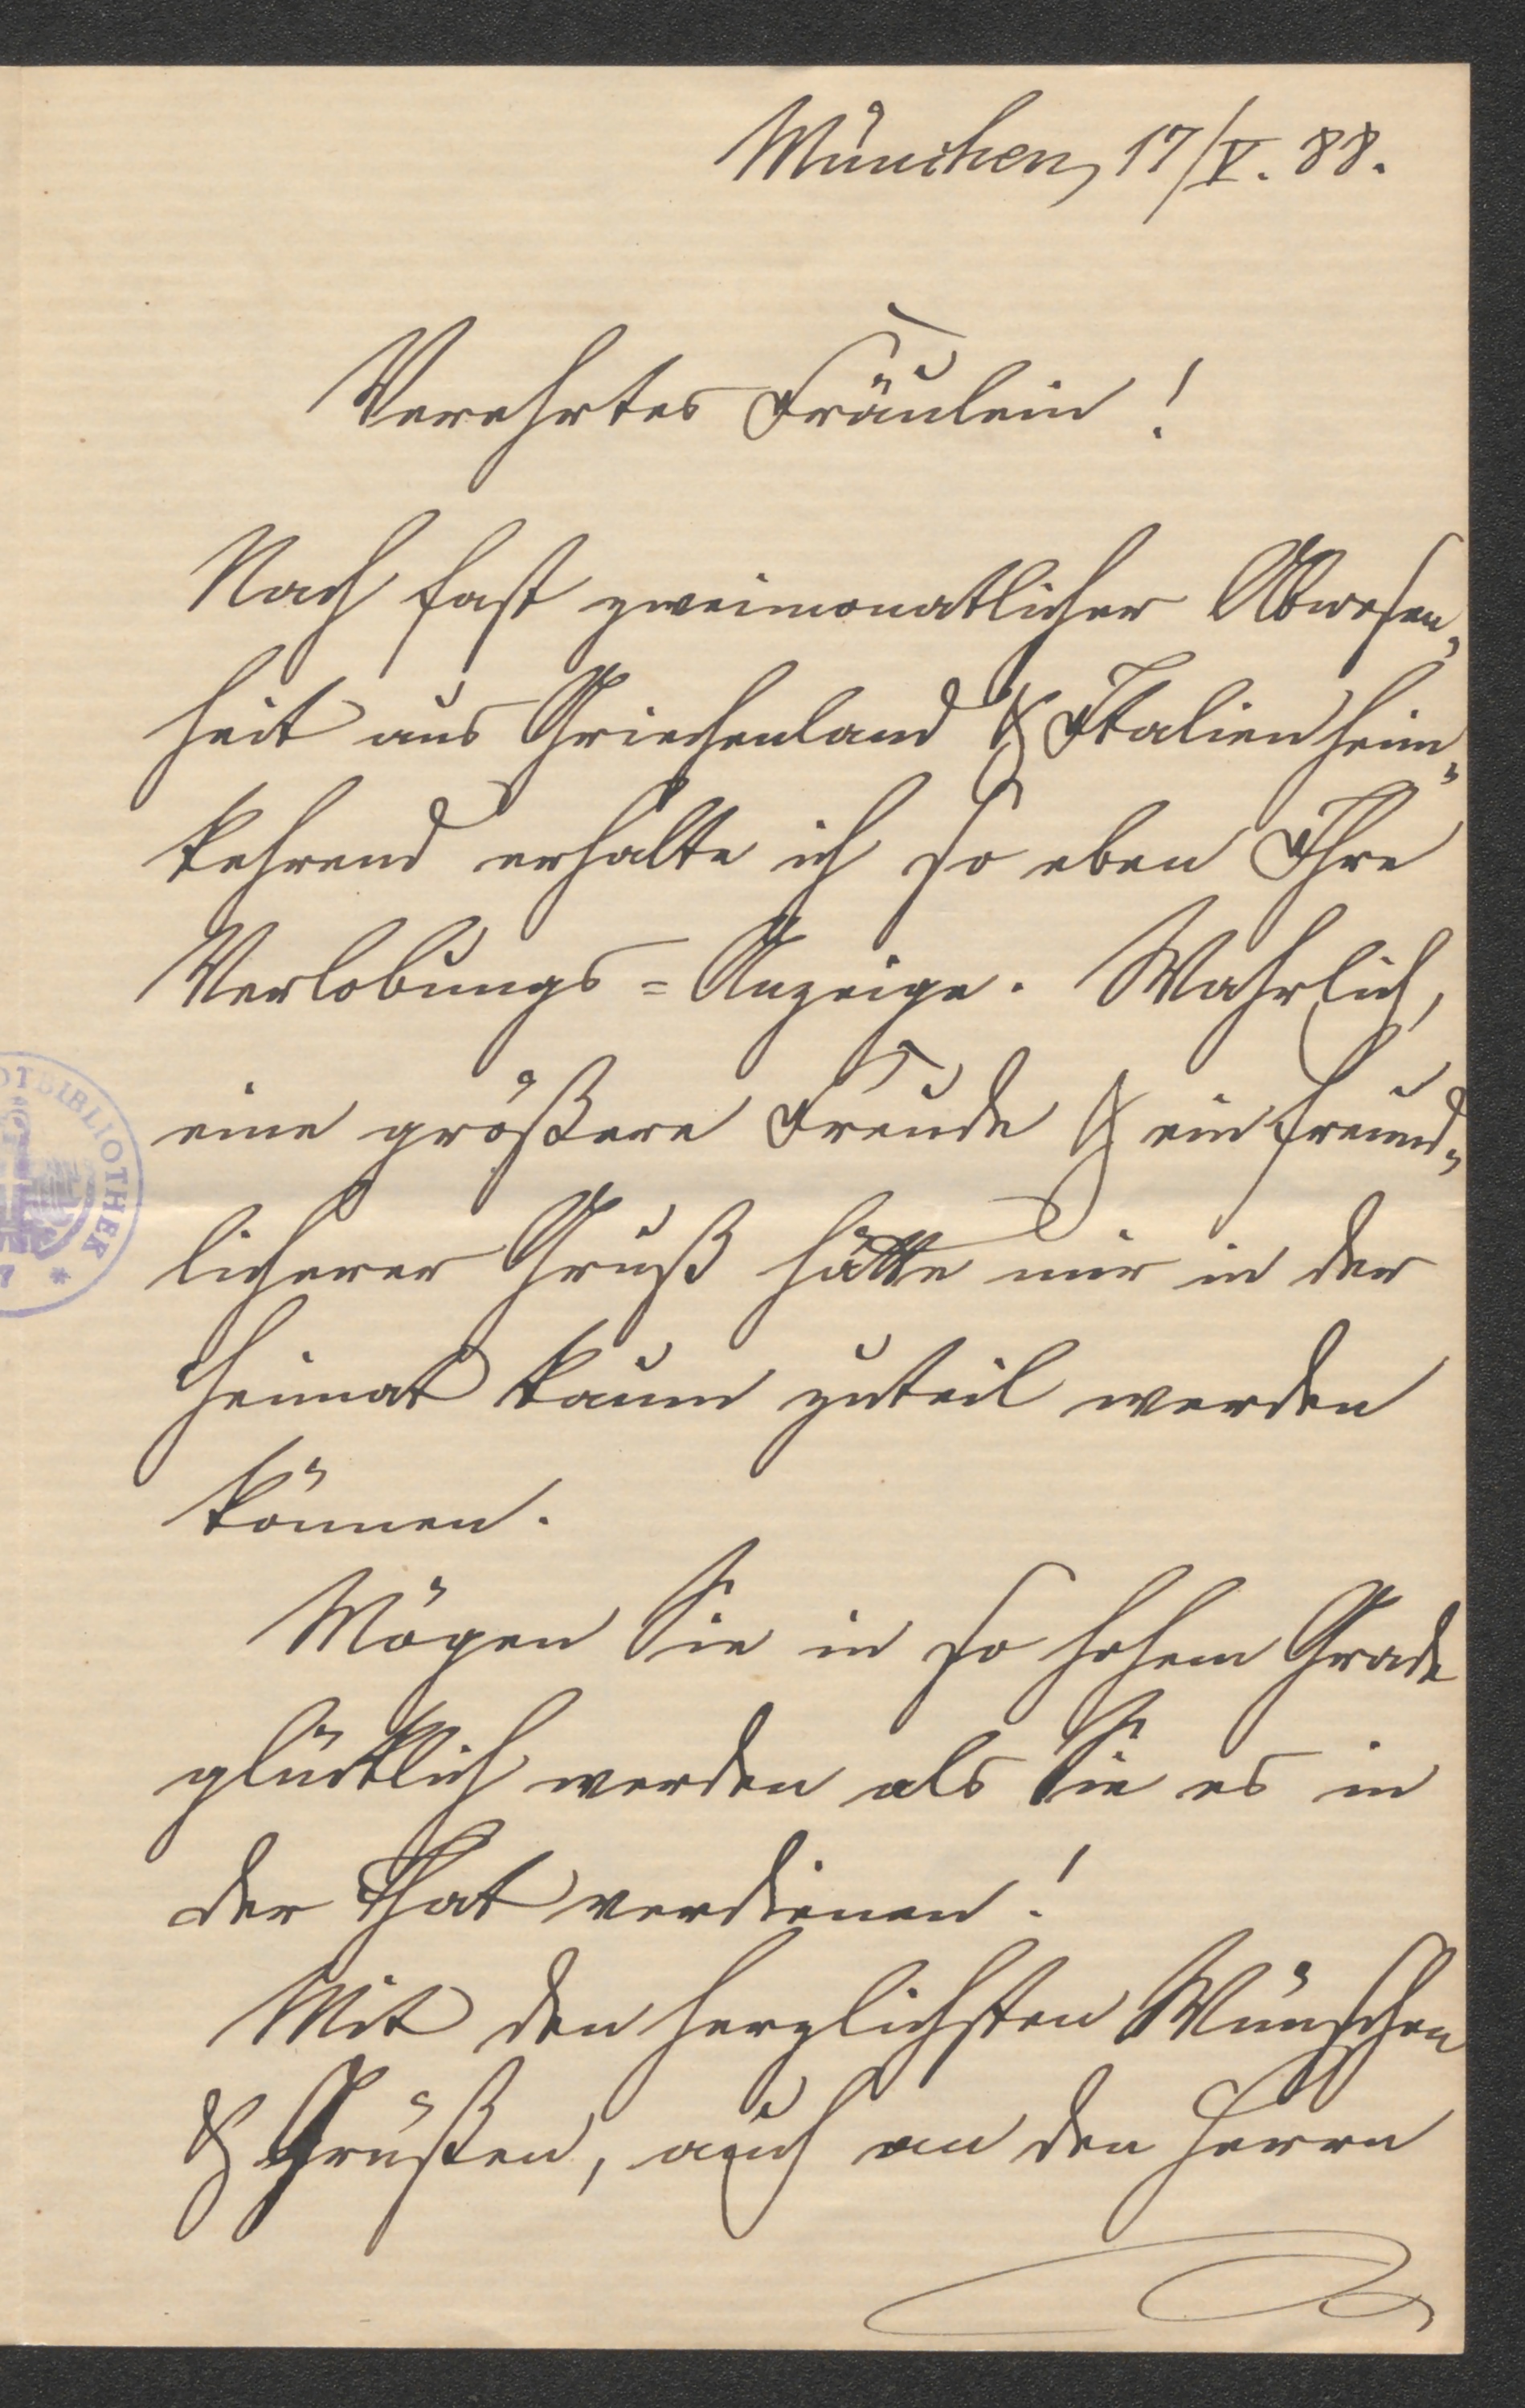 München, 17/V. 88.
Verehrtes Fräulein!
Nach fast zweimonatlicher Abwesen-
heit aus Griechenland & Italien heim-
kehrend erhalte ich so eben Ihre
Verlobungs=Anzeige. Wahrlich,
eine größere Freude & ein freund-
licherer Gruß hätte mir in der
Heimat kaum zuteil werden
können.
Mögen Sie in so hohem Grade
glücklich werden als Sie es in
der That verdienen!
Mit den herzlichsten Wünschen
& Grüßen, auch an den Herrn
OTBIBLIOTHEK
*